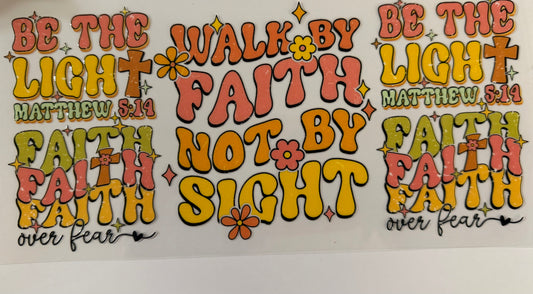 BE THE
LIGHT
MATTHEW 5:14
FAITH
FAITH
FAITH
over fear
WALK BY
FAITH
NOT BY
SIGHT
BE THE
LIGHT
MATTHEW 5:14
FAITH
FAITH
FAITH
over fear